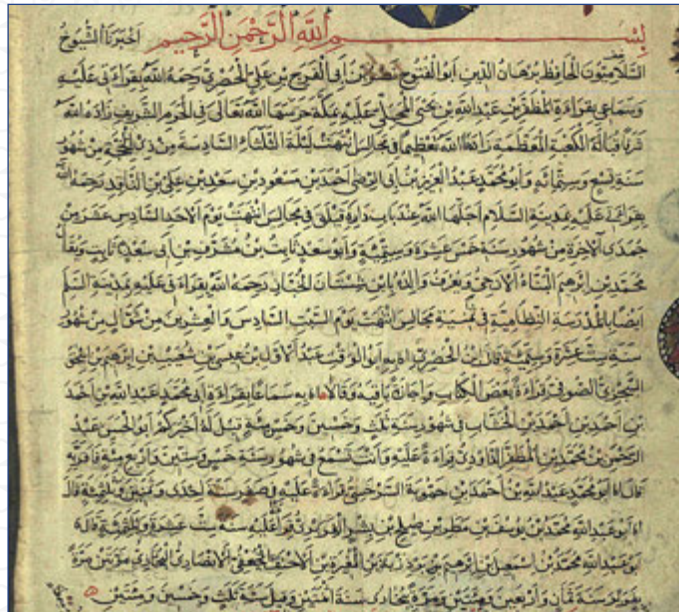 بسم الله الرحمن الرحيم اخبرنا الشيوخ
الثلاثون الحافظ برهان الدين ابو الفتوح نصر بن ابى الفرج بن على الحصرى رحمه الله بقراءتى عليه
وسماعى بقراءة المظفر بن عبد الله بن يحيى عليه بمكة حرسها الله تعالى فى الحرم الشريف زاده الله
شرفا قبالة الكعبة المعظمة زادها الله تعظيما فى مجالس انتهت ليلة الثلثاء السادسة من ذى الحجة من شهور
سنة تسع وستمائه وابو محمد عبد العزيز بن ابى الرضى احمد بن مسعود بن سعد بن على بن الناقد رحمه الله
بقراءتى عليه بمدينة السلام اجلها الله عند باب داره قبلى فى مجالس انتهت يوم الاحد السادس عشر من
جمدى الآخرة من شهور سنة خمس عشرة وستمية وابو سعد ثابت بن مشرف بن ابى سعد ثابت
محمد بن ابرهيم البناء الازجى ويعرف والده بابن شستان الخباز رحمه الله بقراءتى عليه بمدينة السلم
ايضا بالمدرسة النظامية فى مجالس انتهت يوم السبت السادس والعشرين من شوال من شهور
سنة ست عشرة وستمية قال ابن الحصرى انا به ابو الوقت عبد الاول بن عيسى بن شعيب بن ابرهيم بن اسحق
السجزى الصوفى قراءة لبعض الكتاب واجازة لباقيه وقالا انا به سماعا بقراءة ابى محمد عبد الله بن احمد
بن احمد بن احمد بن الخشاب فى شهور سنة ثلث وخمسين وخمس مئة قيل له اخبركم ابو الحسن عبد
الرحمن بن محمد بن المظفر الداودى قراءة عليه وانت تسمع فى شهور سنة خمس وستين واربع مئة فاقر به
قال انا ابو محمد عبد الله بن احمد بن حموية السرخسى قراءة عليه فى صفر سنة احدى وثمنين وثلثمئة قال
انا ابو عبد الله محمد بن يوسف بن مطر بن صلح بن بشر الفربرى قراءة عليه سنة ست عشرة وثلثمئة قال انا
ابو عبد الله محمد بن اسمعيل بن ابرهيم بن المغيرة بن الاحنف الجعفى البخارى مرتين مرة
بفربر سنة ثمان واربعين ومئتين ومرة ببخارى سنة اثنتين وقيل سنة ثلث وخمسين ومئتين